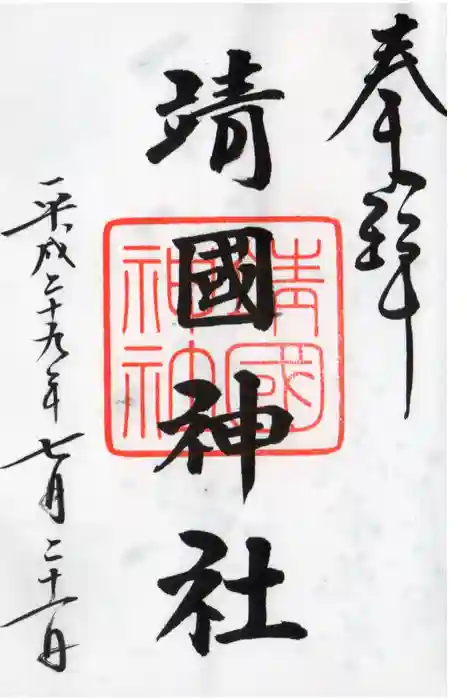 奉拝
靖國神社
靖國神社
平成二十九年七月二十一日